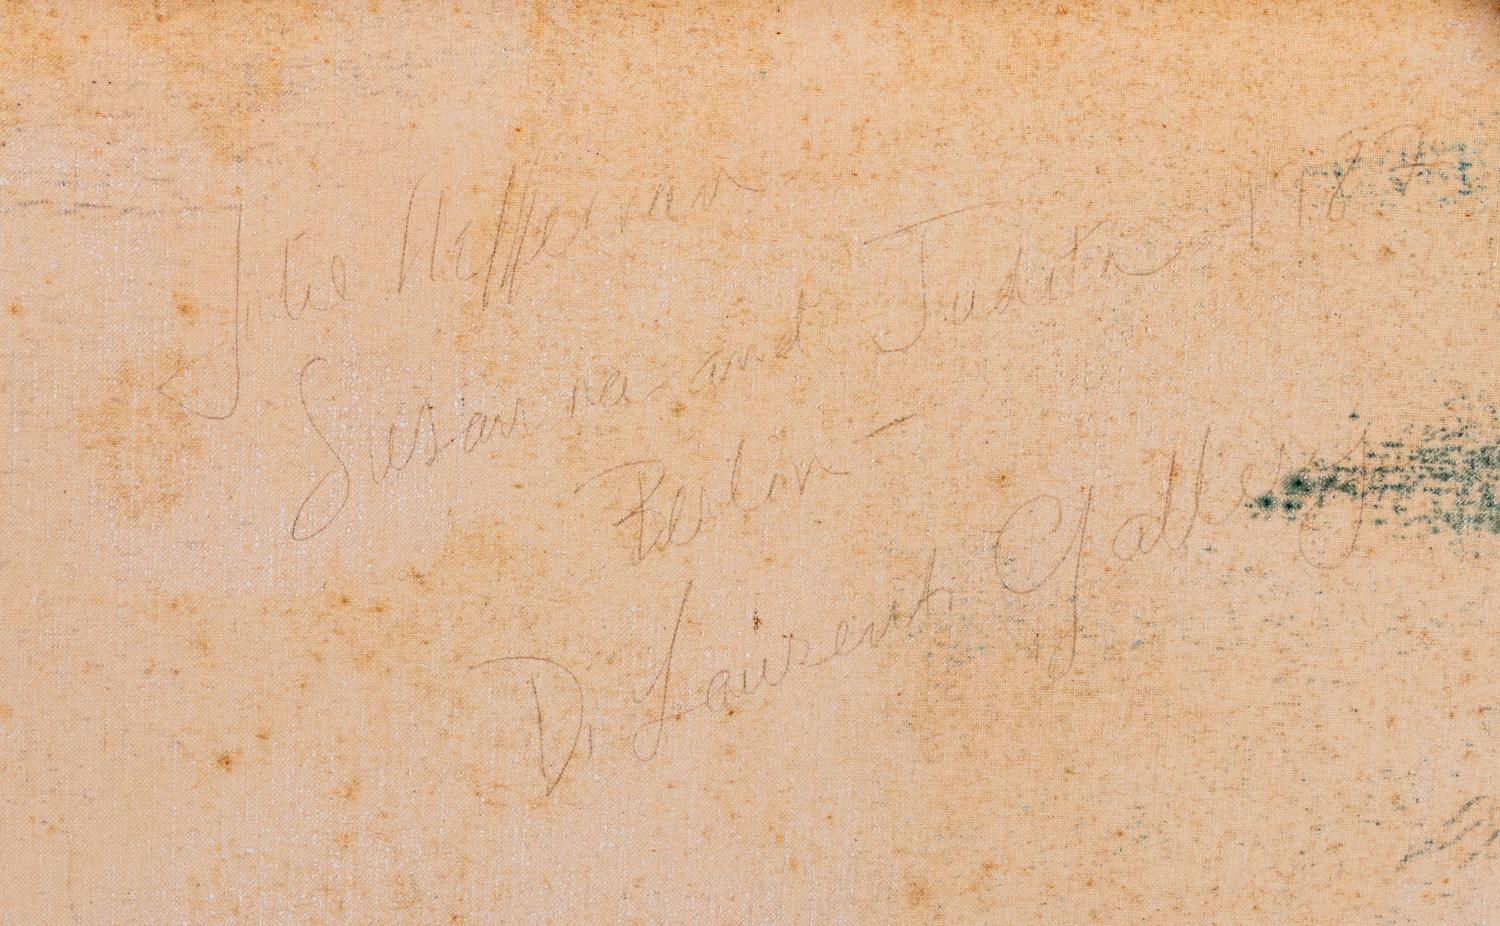 Julie Heffernan
Susanna and Judith 1987
Berlin –
D. Laurent Gallery